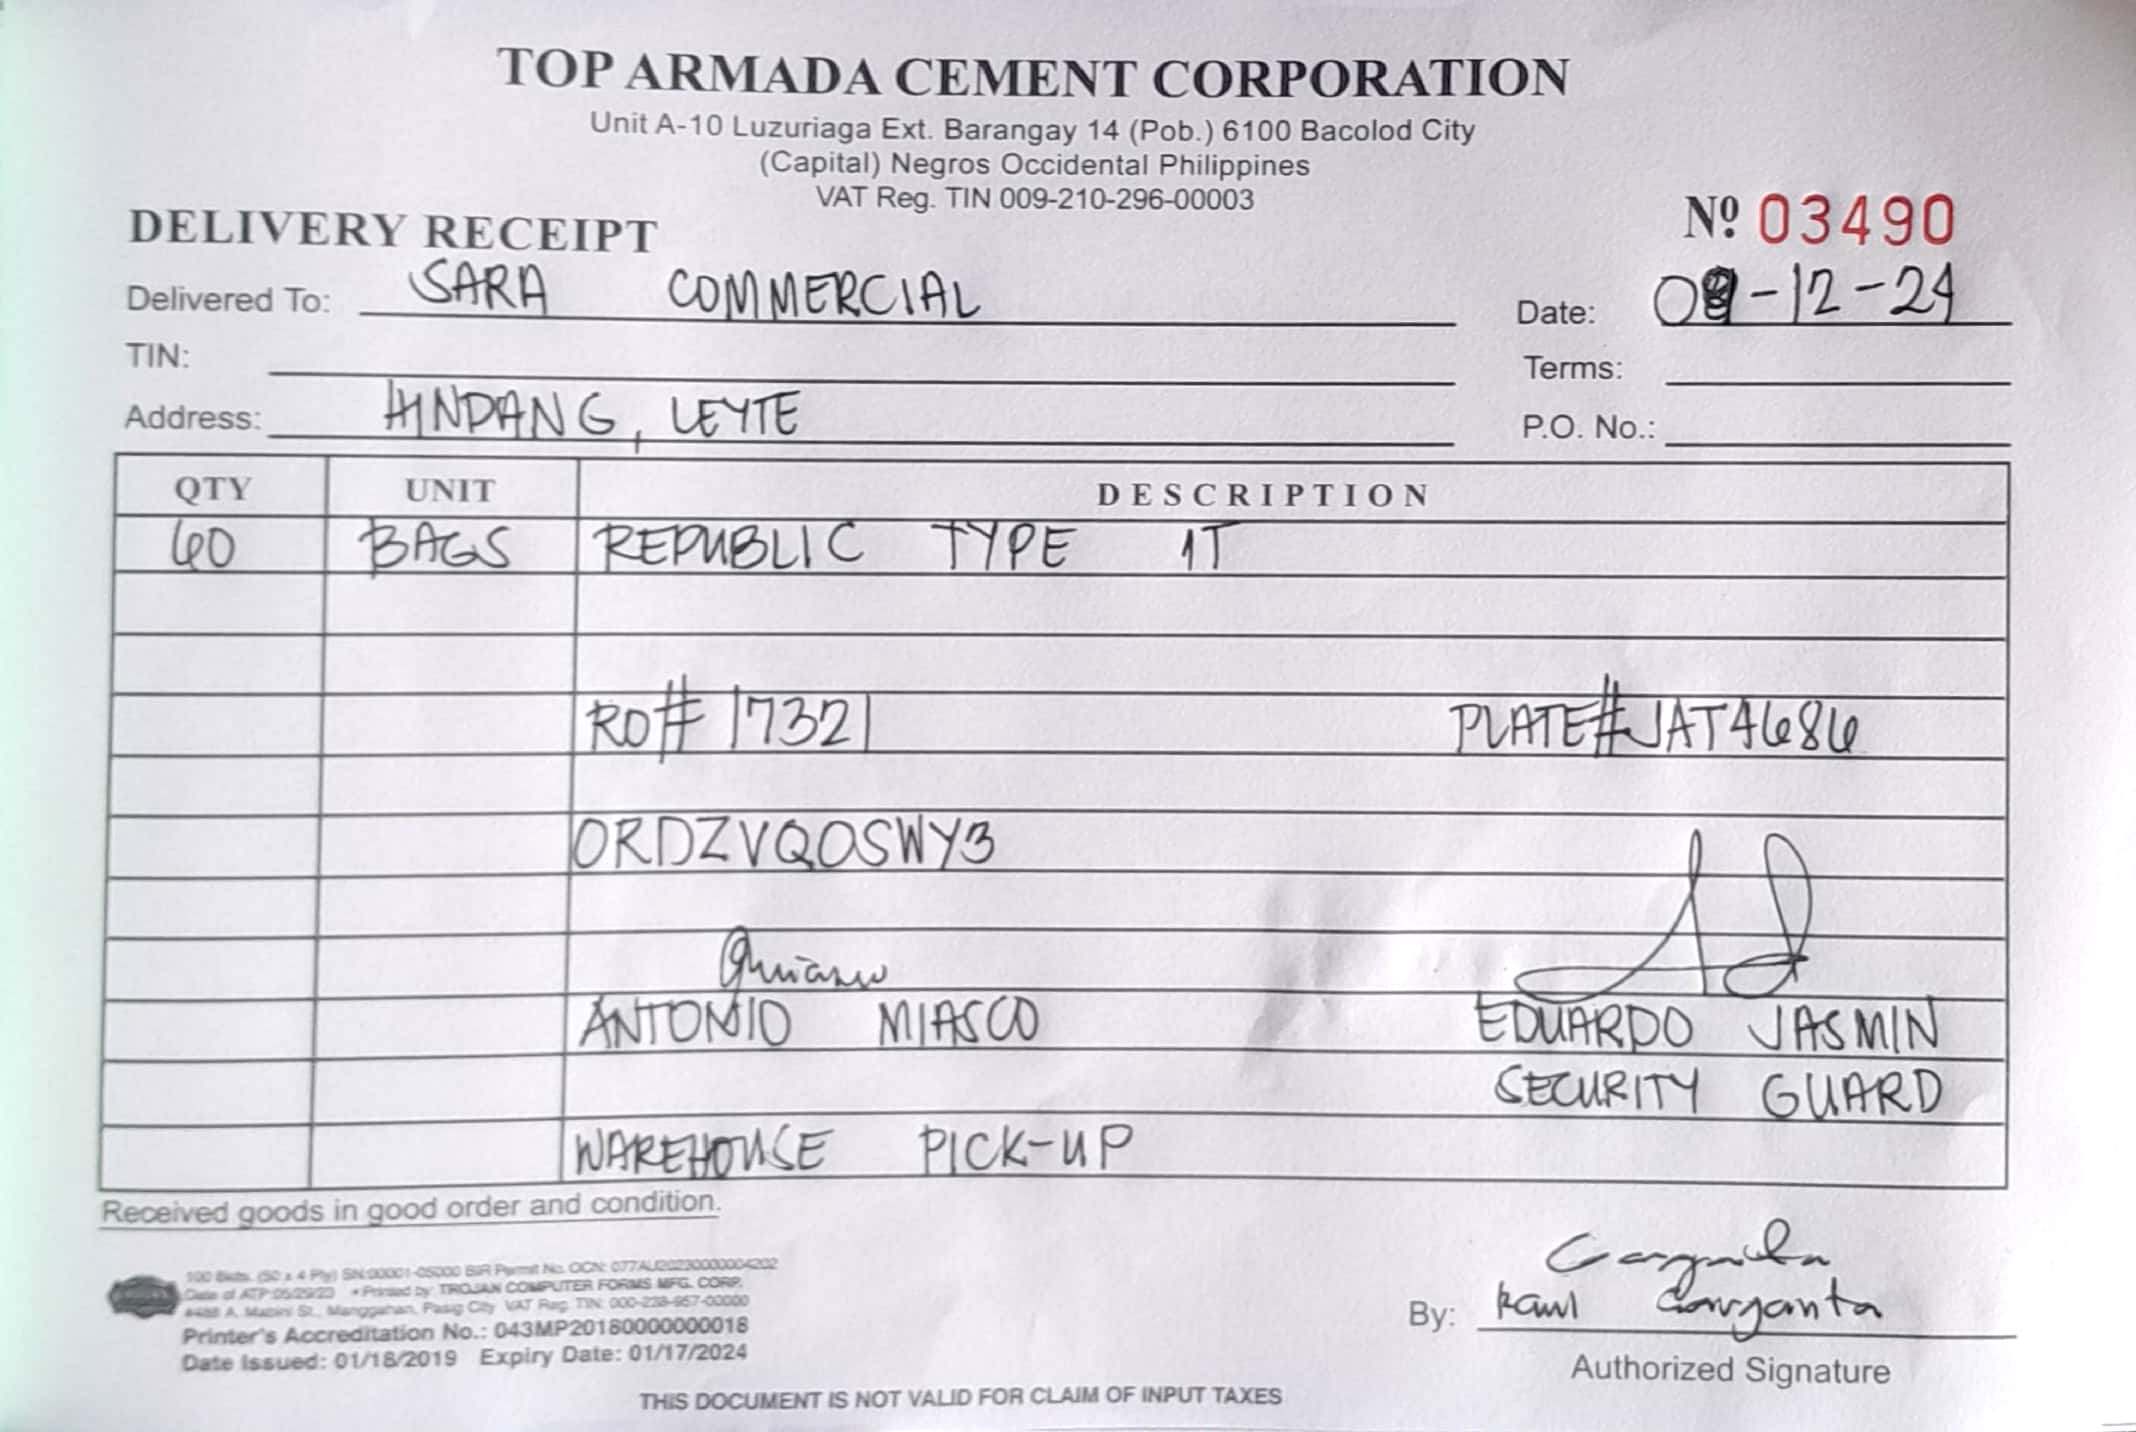 TOP ARMADA CEMENT CORPORATION
Unit A-10 Luzuriaga Ext. Barangay 14 (Pob.) 6100 Bacolod City
(Capital) Negros Occidental Philippines
VAT Reg. TIN 009-210-296-00003
DELIVERY RECEIPT
Nº 03490
Delivered To: SARA COMMERCIAL
Date: -12-24
TIN:
Terms:
Address: HINDANG, LEYTE
P.O. No.:
QTY UNIT DESCRIPTION
60 BAGS REPUBLIC TYPE 1T
RO# 17321 PLATE# JAT4686
ORDZVQOSWY3
ANTONIO MIASCO EDUARDO JASMIN
SECURITY GUARD
WAREHOUSE PICK-UP
Received goods in good order and condition.
100 Bklts. (50 x 4 Ply) SN:00001-05000 BIR Permit No. OCN: 077AU20230000004202
Date of ATP:05/29/23 • Printed by: TROJAN COMPUTER FORMS MFG. CORP.
#488 A. Mabini St., Manggahan, Pasig City VAT Reg. TIN: 000-238-957-00000
Printer's Accreditation No.: 043MP20180000000018
Date Issued: 01/18/2019 Expiry Date: 01/17/2024
By: Raul Garganta
Authorized Signature
THIS DOCUMENT IS NOT VALID FOR CLAIM OF INPUT TAXES